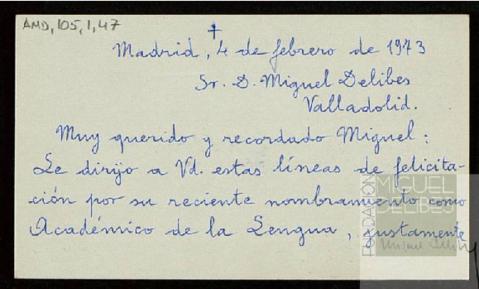 AMD,105,1,47
Madrid, 4 de febrero de 1973
Sr. D. Miguel Delibes
Valladolid.
Muy querido y recordado Miguel:
Le dirijo a Vd. estas líneas de felicita-
ción por su reciente nombramiento como
Académico de la Lengua, justamente
FUNDACIÓN
MIGUEL
DELIBES